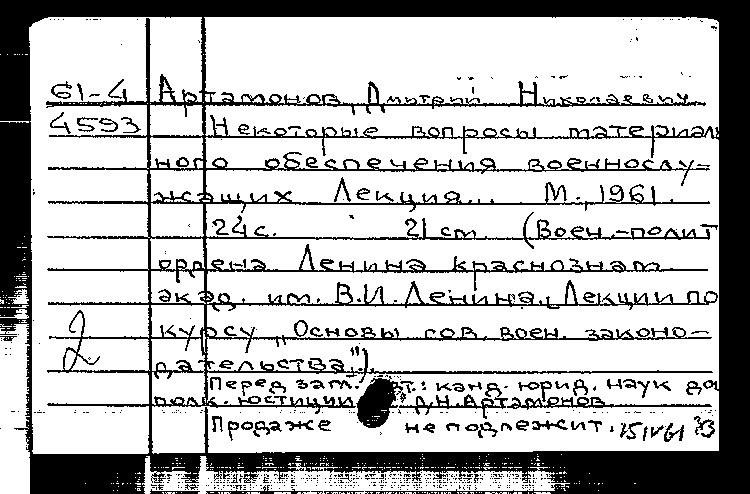 61-4 Артамонов, Дмитрий Николаевич
4593 Некоторые вопросы материаль
ного обеспечения военнослу-
жащих Лекция... М., 1961.
24с. 21 cm (Воен.-полит
ордена Ленина краснознам.
акад. им. В.И. Ленина. Лекции по
2 курсу „Основы сов. воен. законо-
дательства").
Перед загл. авт.: канд. юрид. наук
полк. юстиции Д.Н. Артамонов.
Продаже не подлежит. 15IV61